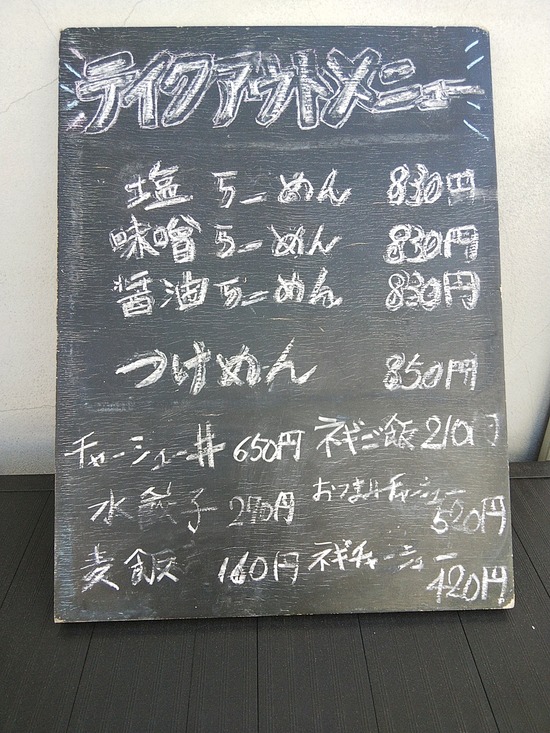 テイクアウトメニュー
塩らーめん 830円
味噌らーめん 830円
醤油らーめん 830円
つけめん 850円
チャーシュー丼 650円
ネギご飯 210円
水餃子 270円
おつまみチャーシュー 520円
麦飯 160円
ネギチャーシュー 420円